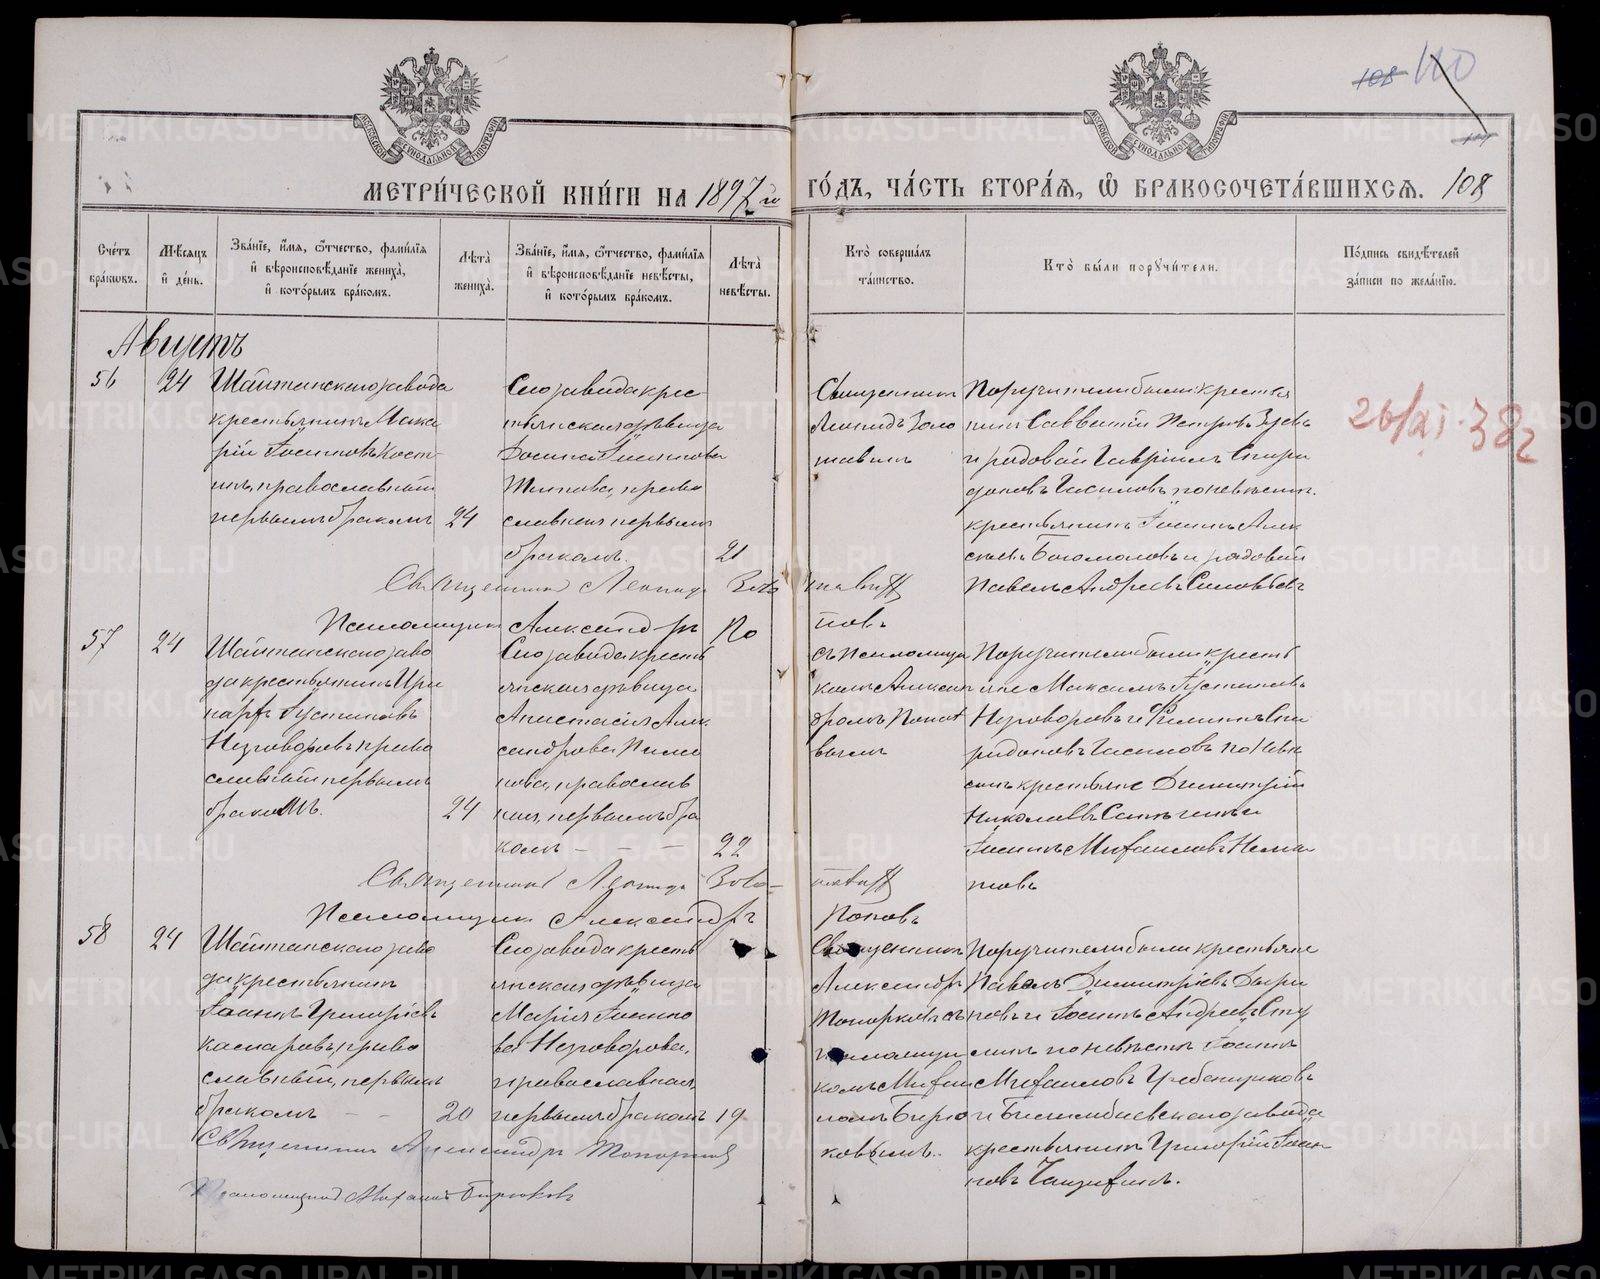 108 110
МЕТРИ́ЧЕСКОЙ КНИ́ГИ НА 1897 го ГО́ДЪ, ЧА́СТЬ ВТОРА́Я, Ѽ БРАКОСОЧЕТА́ВШИХСЯ. 108
Сче́тъ бра́ковъ.
Мѣ́сяцъ и де́нь.
Зва́нїе, и́мя, о́тчество, фами́лїя и вѣроисповѣ́данїе жениха̀, и кото́рымъ бра́комъ.
Лѣ́та жениха̀.
Зва́нїе, и́мя, о́тчество, фами́лїя и вѣроисповѣ́данїе невѣ́сты, и кото́рымъ бра́комъ.
Лѣ́та невѣ́сты.
Кто̀ соверша́лъ та́инство.
Кто̀ бы́ли поручи́тели.
По́дпись свидѣ́телей за́писи по жела́нїю.
Августъ
56
24
Шайтанскаго завода
крестьянинъ Мака
рій Іоанновъ Кост
инъ, православный
первымъ бракомъ
24
Сего завода крес
тьянская дѣвица
первымъ
бракомъ.
21
Священникъ
Леонидъ Золо
тавинъ
Поручители были: крестья
Савватій Петровъ Зуевъ
и рядовой Гавріилъ Спири
доновъ по невѣстѣ:
крестьянинъ Іоаннъ Алек
сѣевъ Богомоловъ и рядовой
Павелъ Андреевъ Соловьевъ
26/XI-38г
Священникъ Леонидъ Золотавинъ
Псаломщикъ Александръ Поповъ
57
24
Шайтанскаго заво
да крестьянинъ Ири
нархъ Іустиновъ
Незговоровъ право
славный первымъ
бракомъ.
24
Сего завода кресть
янская дѣвица
Анастасія Алек
сандрова
православ
ная, первымъ бра
комъ - - -
22
съ псаломщи
комъ Алексан
дромъ Попо
вымъ
Поручители были: кресть
яне Максимъ Іустиновъ
Незговоровъ и Филиппъ Спи
ридоновъ по невѣ
стѣ крестьяне Димитрій
Николаевъ
Іоаннъ Михаиловъ
Священникъ Леонидъ Золотавинъ
Псаломщикъ Александръ Поповъ
58
24
Шайтанскаго заво
да крестьянинъ
Іоаннъ Григоріевъ
Комаровъ, право
славный, первымъ
бракомъ - -
20
Сего завода кресть
янская дѣвица
Марія Іоанно
ва Незговорова,
православная,
первымъ бракомъ
19
Священникъ
Александръ
Топорковъ съ
псаломщи
комъ Михаи
ломъ Бирю
ковымъ.
Поручители были: крестьяне
Павелъ Димитріевъ
и Іоаннъ Андреевъ
по невѣстѣ Іоаннъ
Михаиловъ Гребенщиковъ
и Билимбаевскаго завода
крестьянинъ Григорій Іоан
новъ
Священникъ Александръ Топорковъ
Псаломщикъ Михаилъ Бирюковъ
METRIKI.GASO-URAL.RU